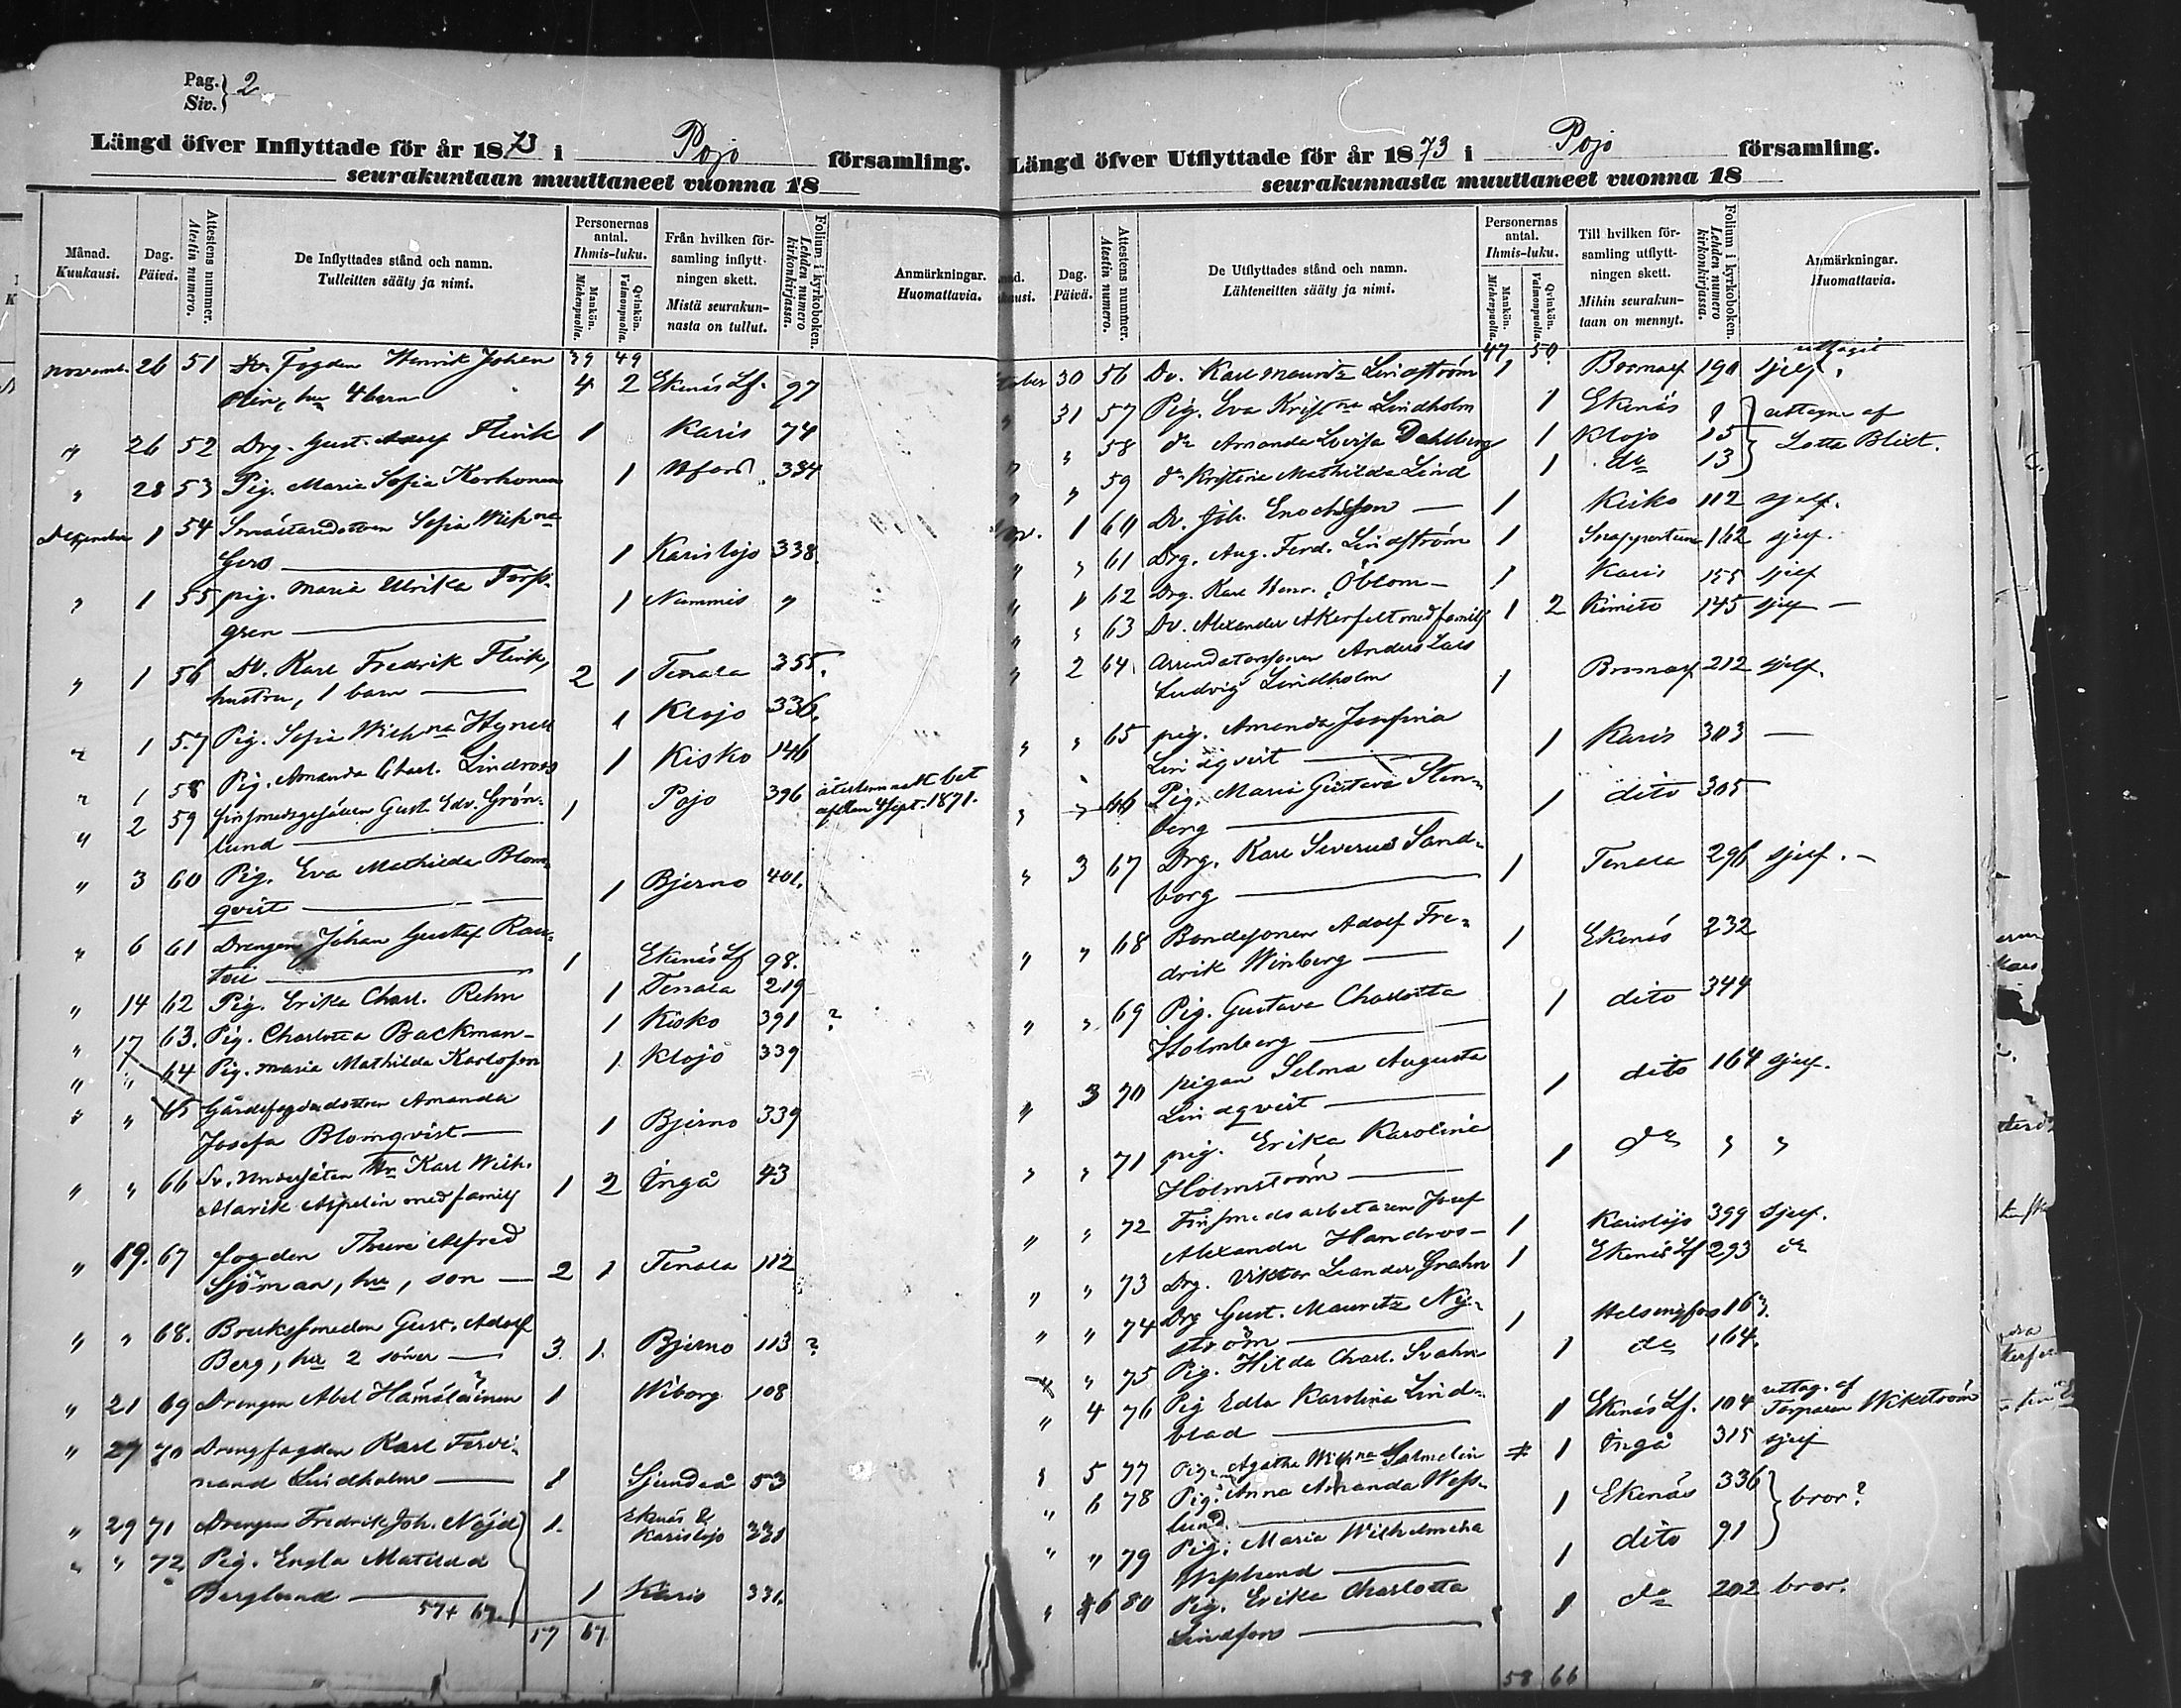 Pag. Siv. } 2
Längd öfver Inflyttade för år 1873 i Pojo församling.
seurakuntaan muuttaneet vuonna 18
Månad. Kuukausi.
Dag. Päivä.
Attestens nummer. Atestin numero.
De Inflyttades stånd och namn. Tulleitten sääty ja nimi.
Personernas antal. Ihmis-luku.
Mankön. Miehenpuolia.
Qvinkön. Vaimonpuolia.
Från hvilken församling inflyttningen skett. Mistä seurakunnasta on tullut.
Folium i kyrkoboken. Lehden numero kirkonkirjassa.
Anmärkningar. Huomattavia.
39 49
Novemb. 26 51 Dr. Fogden Henrik Johan
Olin, hu 4 barn 4 2 Ekenäs Lf. 97
" 26 52 Drg. Gust. Adolf Flink 1 Karis 74
" 28 53 Pig. Maria Sofia Korhonen 1 334
December 1 54 Sofia Wilhna
Gers 1 Karislojo 338.
" 1 55 pig. Maria Ulrika Forss-
gren 1 Nummis "
" 1 56 Dr. Karl Fredrik Flink,
hustru, 1 barn 2 1 Tenala 355.
" 1 57 Pig. Sofia Wilhna Hynell 1 Klojo 336.
" 1 58 Pig. Amanda Charl. Lindroos 1 Kisko 146
" 2 59 finsmedsgesällen Gust. Edv. Grön-
lund 1 Pojo 396 bet af den 4 Sept. 1871.
" 3 60 Pig. Eva Mathilda Blom-
qvist 1 Bjerno 401.
" 6 61 Drengen Johan Gustaf Ran-
1 Ekenäs Lf 98.
" 14 62 Pig. Erika Charl. Rehn 1 Tenala 219
" 17 63. Pig. Charlotta Backman 1 Kisko 391 ?
" " 64 Pig. Maria Mathilda Karlsson 1 Klojo 339
" " 65 Gårdsfogdedottren Amanda
Josefa Blomqvist 1 Bjerno 339
" " 66 Sv. Undersåten Hr Karl Wilh.
Alarik Aspelin med familj 1 2 Ingå 43
" 19. 67 fogden Thure Alfred
Sjöman, hu, son 2 1 Tenala 112
" " 68. Brukssmeden Gust. Adolf
Berg, hu 2 söner 3. 1. Bjerno 113 ?
" 21 69 Drengen Abel Hämäläinen 1 Wiborg 108
" 27 70 Drengfogden Karl Ferdi-
nand Lindholm 1 Sjundeå 53
" 29 71 Drengen Fredrik Joh. Nöjd 1. Ekenäs & Karislojo 331
" " 72 Pig. Engla Matilda
Berglund 1 Karis 331.
57 + 67.
57 67
Längd öfver Utflyttade för år 1873 i Pojo församling.
seurakunnasta muuttaneet vuonna 18
Dag. Päivä.
Attestens nummer. Atestin numero.
De Utflyttades stånd och namn. Lähteneitten sääty ja nimi.
Personernas antal. Ihmis-luku.
Mankön. Miehenpuolia.
Qvinkön. Vaimonpuolia.
Till hvilken församling utflyttningen skett. Mihin seurakuntaan on mennyt.
Folium i kyrkoboken. Lehden numero kirkonkirjassa.
Anmärkningar. Huomattavia.
47 50
30 56 Dr. Karl Mauritz Lindström 1 Bromarf 190 uttagit sjelf.
31 57 Pig. Eva Kristna Lindholm 1 Ekenäs 1 uttagne af
" 58 do Amanda Lovisa Dahlberg 1 Klojo 15 Lotta Blixt.
" " 59 do Kristina Mathilda Lind 1 do 13
Nov. 1 60 Dr. Joh. Enochsson 1 Kisko 112 sjelf.
" " 61 Drg. Aug. Ferd. Lindström 1 Snappertuna 162 sjelf.
" " 62 Drg. Karl Henr. Öblom 1 Karis 155 sjelf
" " 63 Dr. Alexander Åkerfelt med familj 1 2 Kimito 145 sjelf
" 2 64. Arrendatorsonen Anders Lars
Ludvig Lindholm 1 Bromarf 212 sjelf.
" " 65 pig. Amanda Josefina
Lindqvist 1 Karis 303
" " 66 Pig. Maria Gustava Sten-
berg 1 dito 305
" 3 67 Drg. Karl Severus Sand-
borg 1 Tenala 296 sjelf.
" " 68 Bondesonen Adolf Fre-
drik Winberg 1 Ekenäs 232
" " 69 Pig. Gustava Charlotta
Holmberg 1 dito 344
" 3 70 pigan Selma Augusta
Lindqvist 1 dito 164 sjelf.
" " 71 pig. Erika Karolina
Holmström 1 do " "
" " 72 Finsmedsarbetaren Josef
Alexander Handros 1 Karislojo 399 Sjelf.
" " 73 Drg. Viktor Leander Grahn 1 Ekenäs Lf 293 do
" " 74 Drg Gust. Mauritz Ny-
ström 1 Helsingfors 163.
" " 75 Pig. Hilda Charl. Svahn 1 do 164.
" 4 76 Pig Edla Karolina Lind-
blad 1 Ekenäs Lf. 104 uttag. af Torparen Wikström
" 5 77 Pig. Agatha Wilhna Salmelin 1 Ingå 315 sjelf
" 6 78 Pig. Anna Amanda Wess-
lund 1 Ekenäs 336 bror?
" " 79 Pig. Maria Wilhelmina
1 dito 91
" 6 80 Pig. Erika Charlotta
Lindfors 1 do 202 bror.
58 66